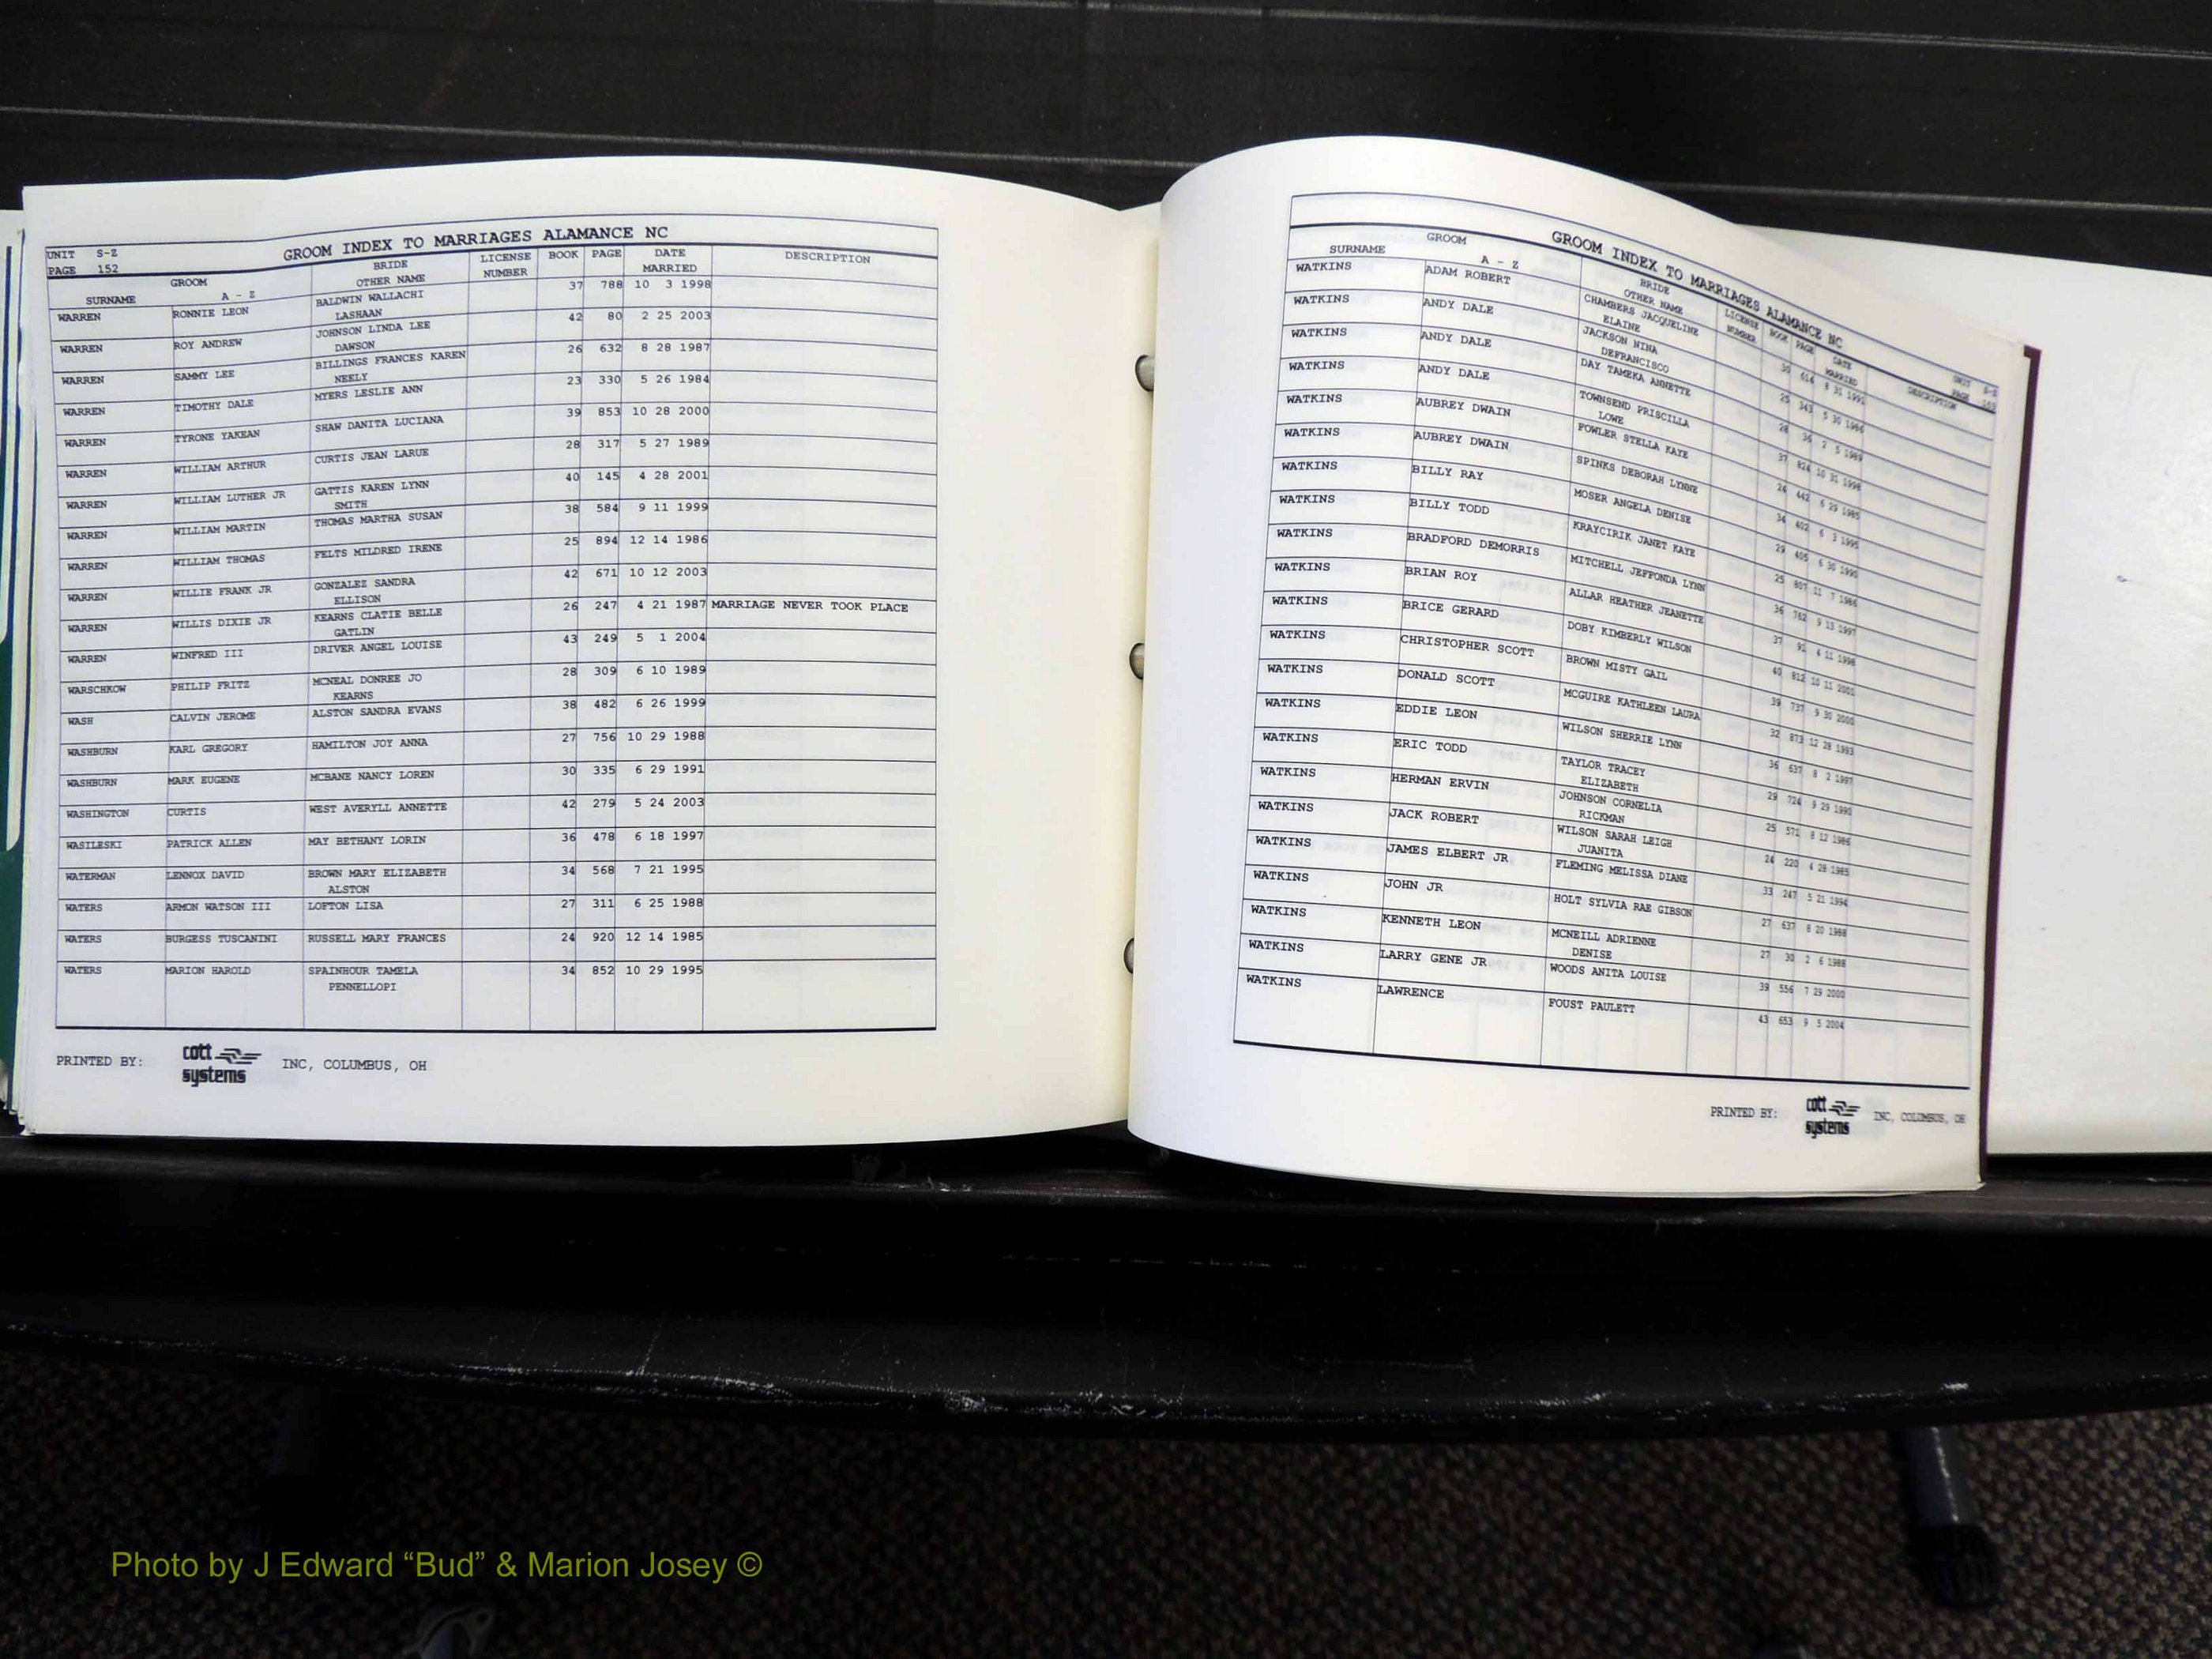 UNIT S-Z
PAGE 152
GROOM INDEX TO MARRIAGES ALAMANCE NC
SURNAME GROOM A - Z BRIDE OTHER NAME LICENSE NUMBER BOOK PAGE DATE MARRIED DESCRIPTION
WARREN RONNIE LEON BALDWIN WALLACHI 37 788 10 3 1998
LASHAAN
WARREN ROY ANDREW JOHNSON LINDA LEE 42 80 2 25 2003
DAWSON
WARREN SAMMY LEE BILLINGS FRANCES KAREN 26 632 8 28 1987
NEELY
WARREN TIMOTHY DALE MYERS LESLIE ANN 23 330 5 26 1984
WARREN TYRONE YAKEAN SHAW DANITA LUCIANA 39 853 10 28 2000
WARREN WILLIAM ARTHUR CURTIS JEAN LARUE 28 317 5 27 1989
WARREN WILLIAM LUTHER JR GATTIS KAREN LYNN 40 145 4 28 2001
SMITH
WARREN WILLIAM MARTIN THOMAS MARTHA SUSAN 38 584 9 11 1999
WARREN WILLIAM THOMAS FELTS MILDRED IRENE 25 894 12 14 1986
WARREN WILLIE FRANK JR GONZALEZ SANDRA 42 671 10 12 2003
ELLISON
WARREN WILLIS DIXIE JR KEARNS CLATIE BELLE 26 247 4 21 1987 MARRIAGE NEVER TOOK PLACE
GATLIN
WARREN WINFRED III DRIVER ANGEL LOUISE 43 249 5 1 2004
WARSCHKOW PHILIP FRITZ MCNEAL DONREE JO 28 309 6 10 1989
KEARNS
WASH CALVIN JEROME ALSTON SANDRA EVANS 38 482 6 26 1999
WASHBURN KARL GREGORY HAMILTON JOY ANNA 27 756 10 29 1988
WASHBURN MARK EUGENE MCBANE NANCY LOREN 30 335 6 29 1991
WASHINGTON CURTIS WEST AVERYLL ANNETTE 42 279 5 24 2003
WASILESKI PATRICK ALLEN MAY BETHANY LORIN 36 478 6 18 1997
WATERMAN LENNOX DAVID BROWN MARY ELIZABETH 34 568 7 21 1995
ALSTON
WATERS ARMON WATSON III LOFTON LISA 27 311 6 25 1988
WATERS BURGESS TUSCANINI RUSSELL MARY FRANCES 24 920 12 14 1985
WATERS MARION HAROLD SPAINHOUR TAMELA 34 852 10 29 1995
PENNELLOPI
PRINTED BY: cott systems INC, COLUMBUS, OH
GROOM INDEX TO MARRIAGES ALAMANCE NC
UNIT S-Z
PAGE 153
SURNAME GROOM A - Z BRIDE OTHER NAME LICENSE NUMBER BOOK PAGE DATE MARRIED DESCRIPTION
WATKINS ADAM ROBERT CHAMBERS JACQUELINE 30 614 8 31 1991
ELAINE
WATKINS ANDY DALE JACKSON NINA 25 343 5 30 1986
DEFRANCISCO
WATKINS ANDY DALE DAY TAMEKA ANNETTE 28 36 2 5 1989
WATKINS ANDY DALE TOWNSEND PRISCILLA 37 824 10 31 1998
LOWE
WATKINS AUBREY DWAIN FOWLER STELLA KAYE 24 442 6 29 1985
WATKINS AUBREY DWAIN SPINKS DEBORAH LYNNE 34 402 6 3 1995
WATKINS BILLY RAY MOSER ANGELA DENISE 29 405 6 30 1990
WATKINS BILLY TODD KRAYCIRIK JANET KAYE 25 807 11 7 1986
WATKINS BRADFORD DEMORRIS MITCHELL JEFFONDA LYNN 36 762 9 13 1997
WATKINS BRIAN ROY ALLAR HEATHER JEANETTE 37 91 4 11 1998
WATKINS BRICE GERARD DOBY KIMBERLY WILSON 40 812 10 11 2001
WATKINS CHRISTOPHER SCOTT BROWN MISTY GAIL 39 737 9 30 2000
WATKINS DONALD SCOTT MCGUIRE KATHLEEN LAURA 32 873 12 28 1993
WATKINS EDDIE LEON WILSON SHERRIE LYNN 36 637 8 2 1997
WATKINS ERIC TODD TAYLOR TRACEY 29 724 9 29 1990
ELIZABETH
WATKINS HERMAN ERVIN JOHNSON CORNELIA 25 571 8 12 1986
RICKMAN
WATKINS JACK ROBERT WILSON SARAH LEIGH 24 220 4 28 1985
JUANITA
WATKINS JAMES ELBERT JR FLEMING MELISSA DIANE 33 247 5 21 1994
WATKINS JOHN JR HOLT SYLVIA RAE GIBSON 27 637 8 20 1988
WATKINS KENNETH LEON MCNEILL ADRIENNE 27 30 2 6 1988
DENISE
WATKINS LARRY GENE JR WOODS ANITA LOUISE 39 556 7 29 2000
WATKINS LAWRENCE FOUST PAULETT 43 653 9 5 2004
PRINTED BY: cott systems INC, COLUMBUS, OH
Photo by J Edward “Bud” & Marion Josey ©